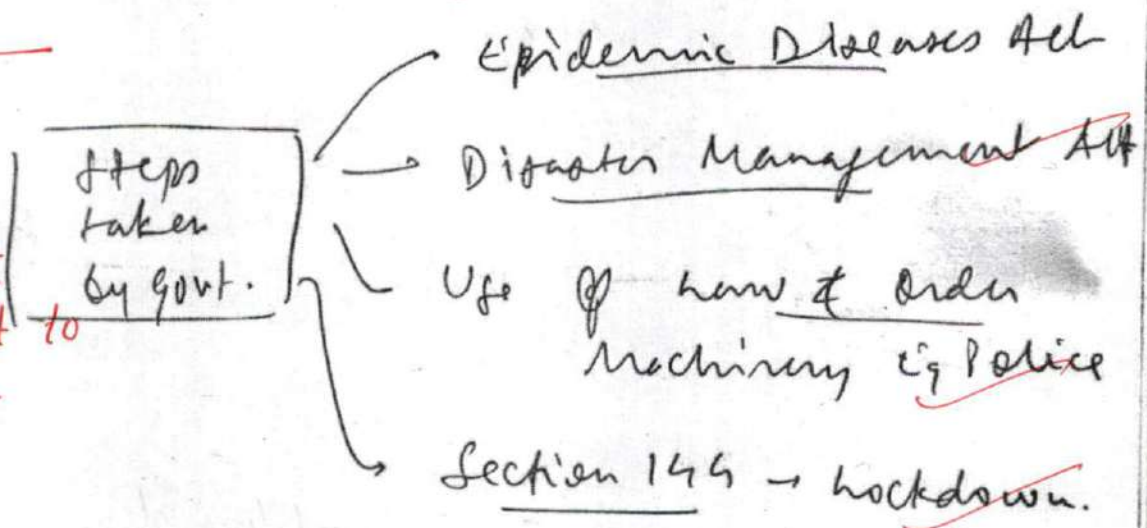 Steps
taken
by govt.
Epidemic Diseases Act
Disaster Management Act
Use of Law & Order
Machinery Eg Police
Section 144 → Lockdown.
to